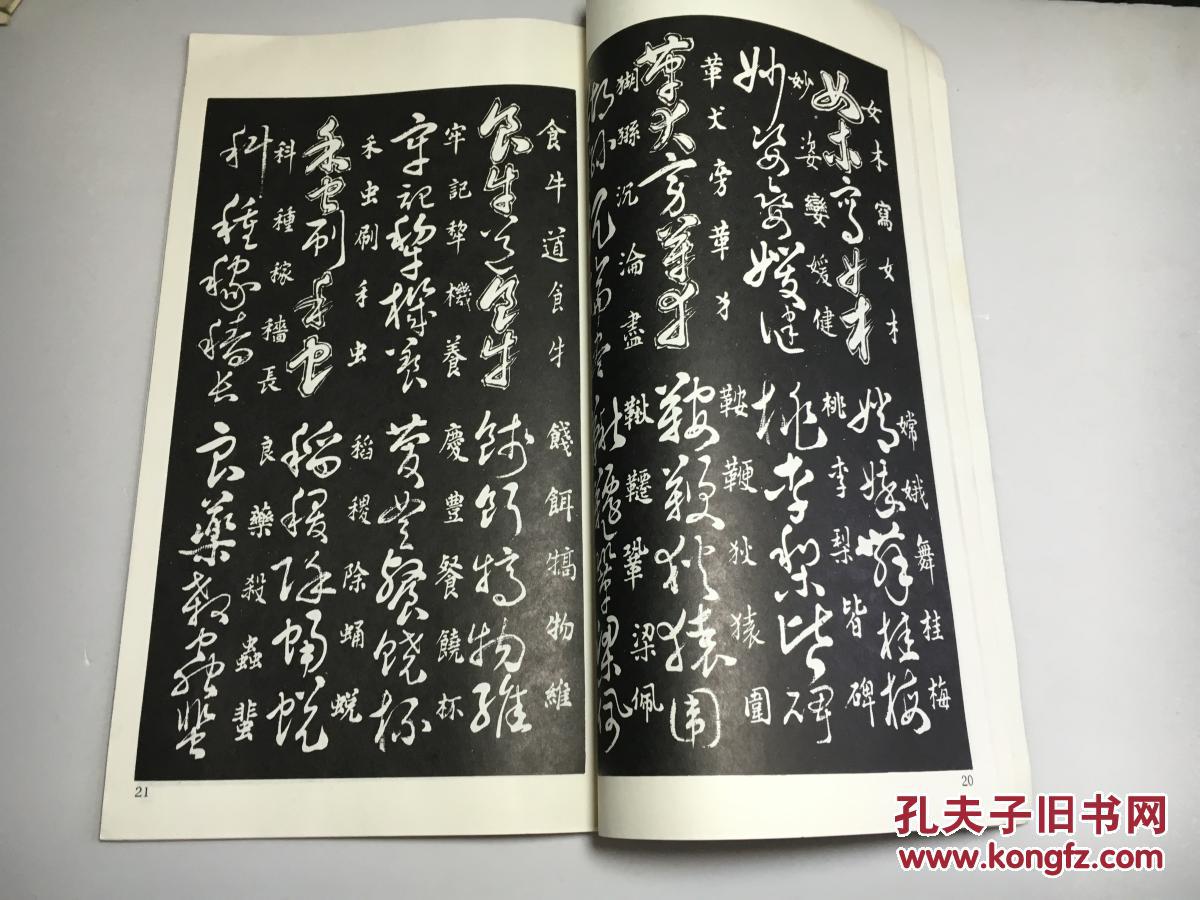 女木寫女才 嫦娥舞桂梅
妙姿孌媛健 桃李梨皆碑
革犬旁革犭 鞍鞭狄猿圍
猢猻沉淪盡 鞦韆鞏梁佩
20
食牛道飠牜 餞餌犒物維
牢記犂機養 慶豊餐饒杯
禾虫刷禾虫 稻稷除蛹蜕
科種稼穡長 良藥殺蟲蜚
21
孔夫子旧书网
www.kongfz.com